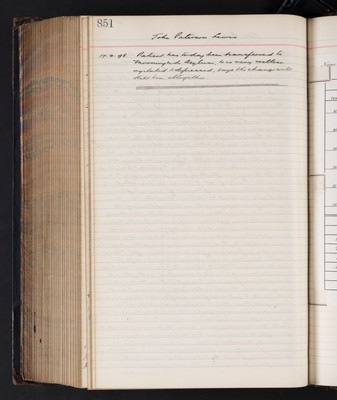 851
John Paterson Lewis
17. 9. 98. Patient has today been transferred to
Asylum, he is very restless
agitated & depressed, says the change will
kill him altogether